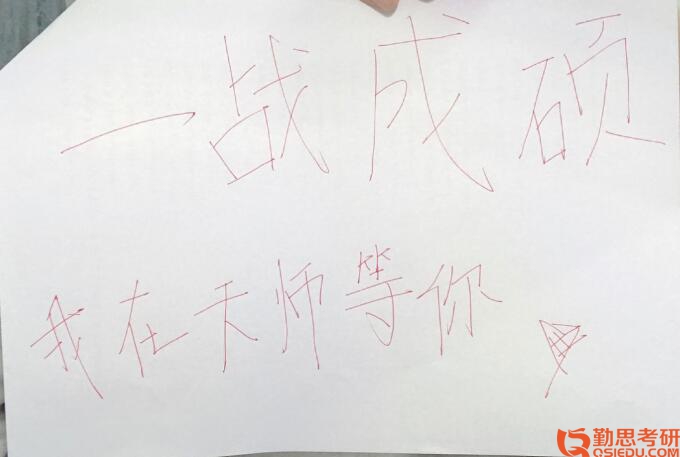 一战成硕
我在天师等你
勤思考研
QSIEDU.COM